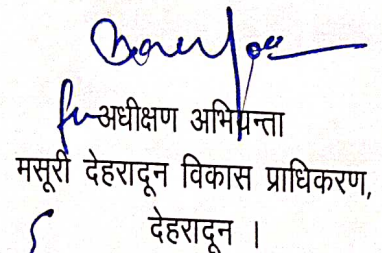 अधीक्षण अभियन्ता
मसूरी देहरादून विकास प्राधिकरण,
देहरादून ।